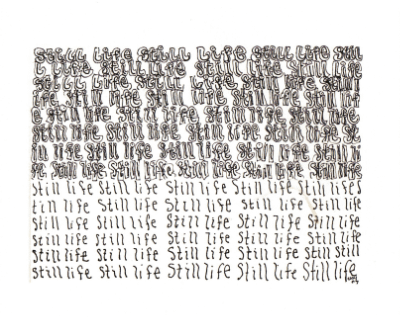 Still life Still life Still life Still
l life Still life Still life Still life
Still life Still life Still life
life Still life Still life Still lif
e Still life Still life Still life Still life
Still life Still life Still life Still life St
ill life Still life Still life Still life Still li
fe Still life Still life Still life Still life Still life
Still life Still life Still life Still life Still life S
till life Still life Still life Still life Still life
Still life Still life Still life Still life Still life
Still life Still life Still life Still life Still life
Still life Still life Still life Still life Still
Still life Still life Still life Still life Still life